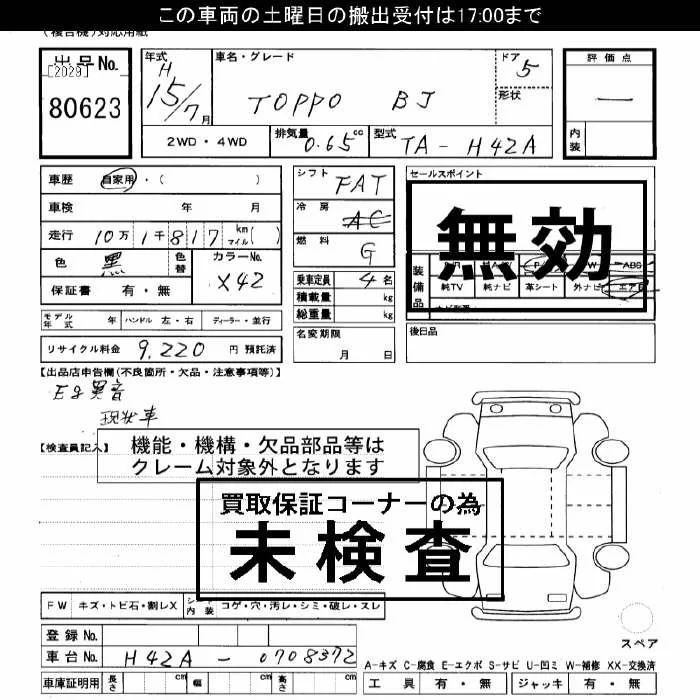 この車両の土曜日の搬出受付は17:00まで
(複合機)対応用紙
出品No.
[2029]
80623
年式
H
15/7月
車名・グレード
TOPPO BJ
ドア
5
形状
評価点
一
内装
2WD・4WD
排気量
0.65cc
型式
TA-H42A
車歴
自家用・( )
車検 年 月
走行 10万1千817 km マイル( )
色 黒
色替
カラーNo.
X42
保証書 有・無
シフト
FAT
冷房
AC
燃料
G
乗車定員 4名
積載量 kg
総重量 kg
セールスポイント
無効
装備品
S/R
P/S
P/W
ABS
純TV
純ナビ
革シート
外ナビ
エアB
モデル年式 年
ハンドル 左・右
ディーラー・並行
名変期限
月 日
後日品
リサイクル料金 9,220 円 預託済
【出品店申告欄(不良箇所・欠品・注意事項等)】
Eg異音
現状車
【検査員記入】
機能・機構・欠品部品等は
クレーム対象外となります
買取保証コーナーの為
未検査
FW
キズ・トビ石・割レX
シート内装
コゲ・穴・汚レ・シミ・破レ・スレ
スペア
登録No.
車台No. H42A-0708372
A-キズ C-腐食 E-エクボ S-サビ U-凹ミ W-補修 XX-交換済
車庫証明用
長さ cm
幅 cm
高さ cm
工具 有・無
ジャッキ 有・無